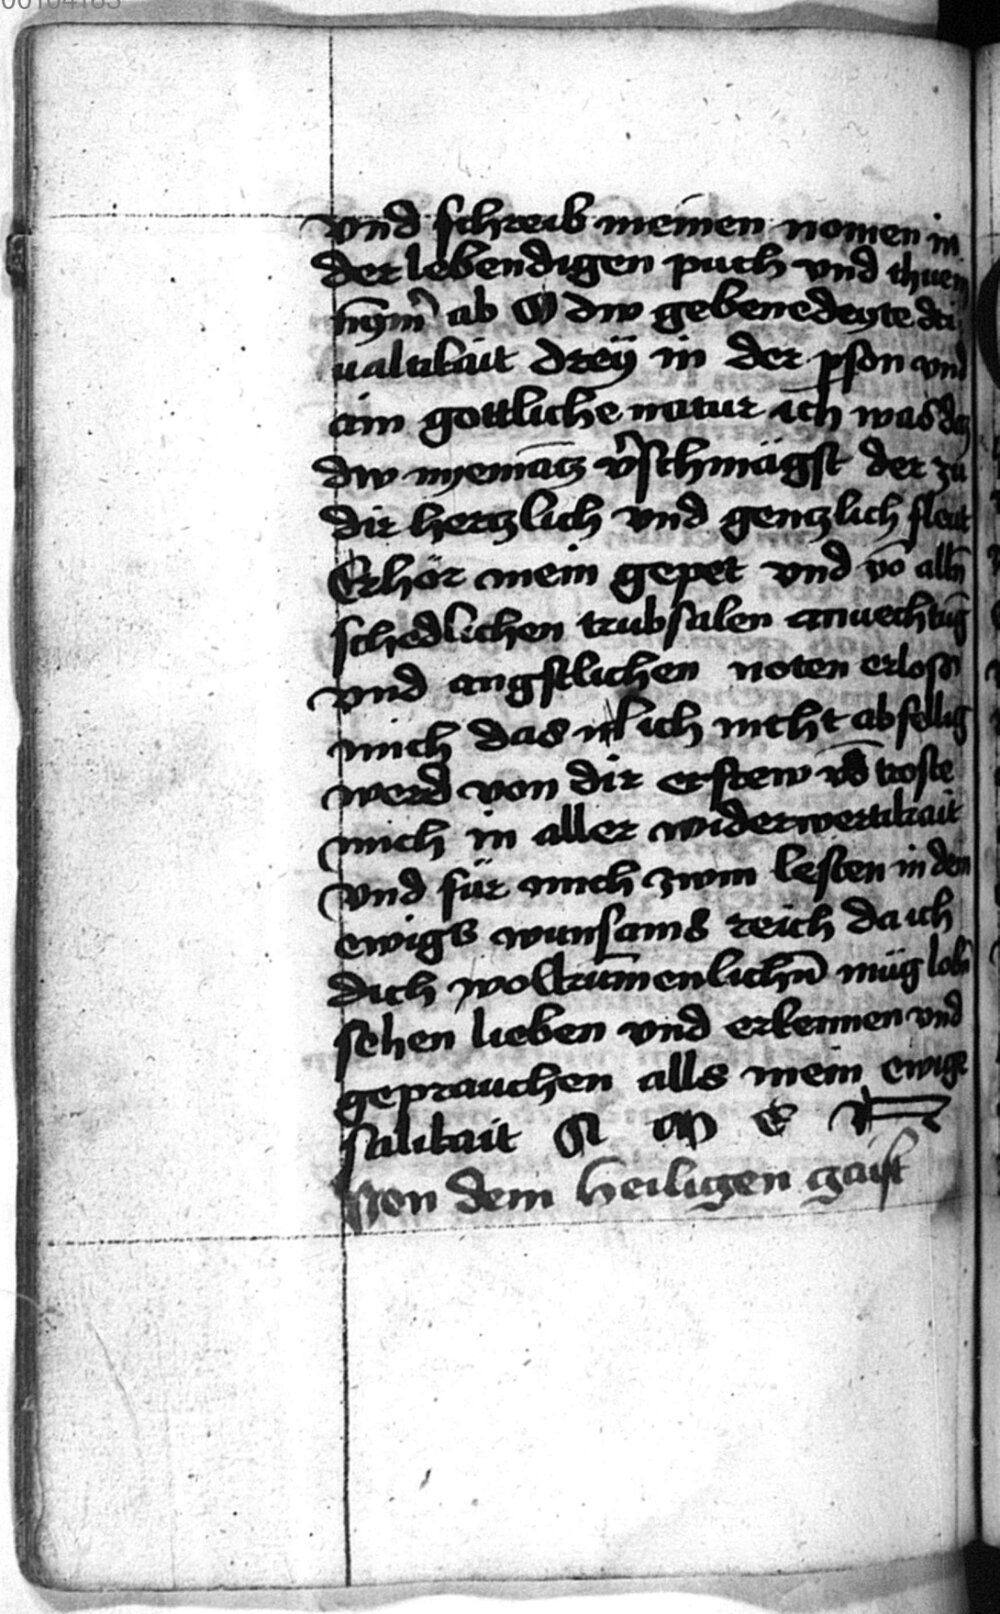 vnd schreib meinen nomen in
der lebendigen puch vnd thuen
nȳmˀ ab O dw gebenedeyte dri
ualtikait dreÿ in der pson vnd
ain gottliche natur ich was daz
dw nyemātz v̾schmägst der zu
dir hertzlich vnd gentzlich fleut
Erhör mein gepet vnd vō alln̄
schedlichen trubsalen anuechtūg
vnd angstlichen noten erloss
mich das ich nicht abfellig
werd von dir ersterw vn̄ troste
mich in aller widerwertikait
vnd für mich zwm lesten in den
ewigs wunsams reich da ich
dich wolkūmenlichn̄ müg lobn̄
sehen lieben vnd erkennen vnd
geprauchen alls mein ewige
salikait A M E N
Von dem heiligen gaist